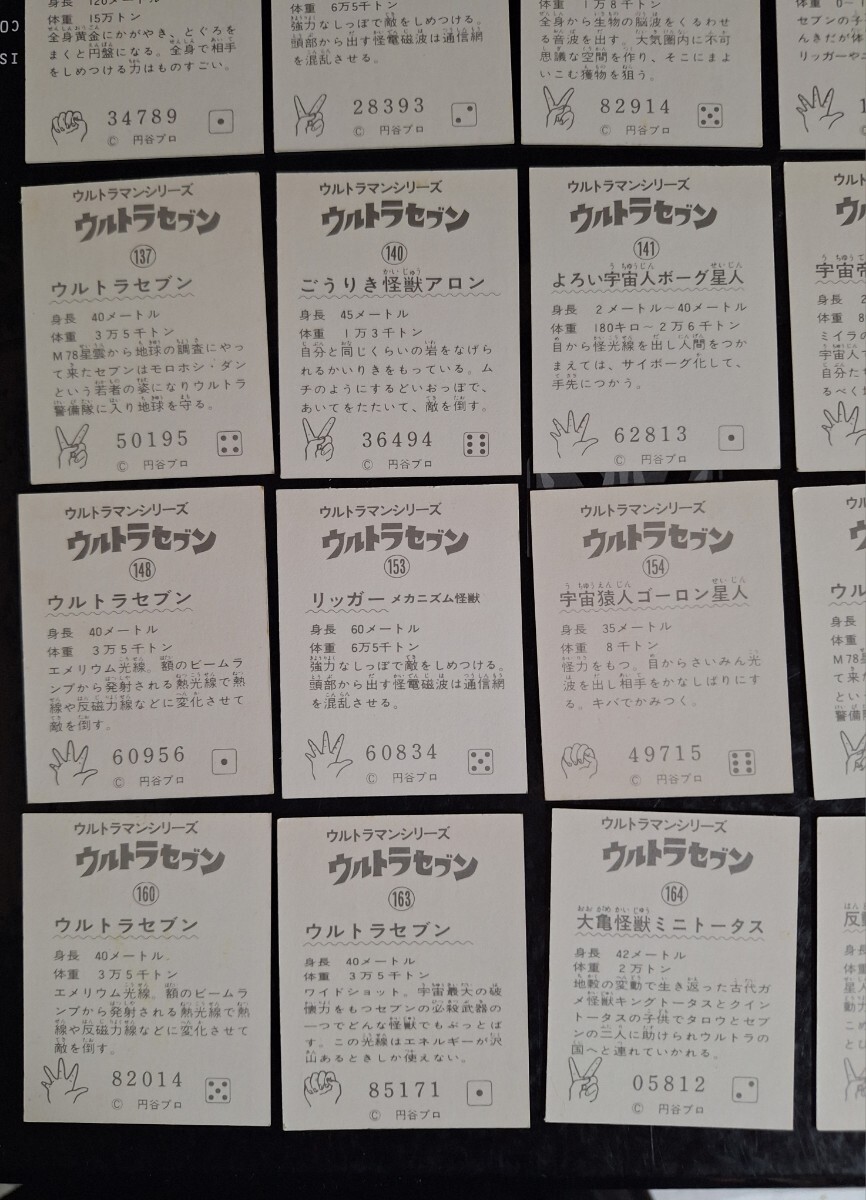 身長 120メートル
体重 15万トン
全身黄金にかがやき、とぐろを
まくと円盤になる。全身で相手
をしめつける力はものすごい。
34789
© 円谷プロ
体重 6万5千トン
強力なしっぽで敵をしめつける。
頭部から出す怪電磁波は通信網
を混乱させる。
28393
© 円谷プロ
体重 1万8千トン
全身から生物の脳波をくるわせ
る音波を出す。大気圏内に不可
思議な空間を作り、そこにまよ
いこむ獲物を狙う。
82914
© 円谷プロ
セブンの子
んきだが体
リッガーや
ウルトラマンシリーズ
ウルトラセブン
137
ウルトラセブン
身長 40メートル
体重 3万5千トン
M78星雲から地球の調査にやっ
て来たセブンはモロホシ・ダン
という若者の姿になりウルトラ
警備隊に入り地球を守る。
50195
© 円谷プロ
ウルトラマンシリーズ
ウルトラセブン
140
ごうりき怪獣アロン
身長 45メートル
体重 1万3千トン
自分と同じくらいの岩をなげら
れるかいりきをもっている。ム
チのようにするどいおっぽで、
あいてをたたいて、敵を倒す。
36494
© 円谷プロ
ウルトラマンシリーズ
ウルトラセブン
141
よろい宇宙人ボーグ星人
身長 2メートル〜40メートル
体重 180キロ〜2万6千トン
目から怪光線を出し人間をつか
まえては、サイボーグ化して、
手先につかう。
62813
© 円谷プロ
ウルトラ
宇宙帝
身長
体重
ミイラの
宇宙人で
自分たち
るべく
ウルトラマンシリーズ
ウルトラセブン
148
ウルトラセブン
身長 40メートル
体重 3万5千トン
エメリウム光線。額のビームラ
ンプから発射される熱光線で熱
線や反磁力線などに変化させて
敵を倒す。
60956
© 円谷プロ
ウルトラマンシリーズ
ウルトラセブン
153
リッガー メカニズム怪獣
身長 60メートル
体重 6万5千トン
強力なしっぽで敵をしめつける。
頭部から出す怪電磁波は通信網
を混乱させる。
60834
© 円谷プロ
ウルトラマンシリーズ
ウルトラセブン
154
宇宙猿人ゴーロン星人
身長 35メートル
体重 8千トン
怪力をもつ。目からさいみん光
波を出し相手をかなしばりにす
る。キバでかみつく。
49715
© 円谷プロ
ウル
身長
体重
M78星
て来た
とい
警備隊
ウルトラマンシリーズ
ウルトラセブン
160
ウルトラセブン
身長 40メートル
体重 3万5千トン
エメリウム光線。額のビームラ
ンプから発射される熱光線で熱
線や反磁力線などに変化させて
敵を倒す。
82014
© 円谷プロ
ウルトラマンシリーズ
ウルトラセブン
163
ウルトラセブン
身長 40メートル
体重 3万5千トン
ワイドショット。宇宙最大の破
懐力をもつセブンの必殺武器の
一つでどんな怪獣でもぶっとば
す。この光線はエネルギーが沢
山あるときしか使えない。
85171
© 円谷プロ
ウルトラマンシリーズ
ウルトラセブン
164
大亀怪獣ミニトータス
身長 42メートル
体重 2万トン
地殻の変動で生き返った古代ガ
メ怪獣キングトータスとクイン
トータスの子供でタロウとセブ
ンの二人に助けられウルトラの
国へと連れていかれる。
05812
© 円谷プロ
反
身長
体重
星人
動力
こめ
とび